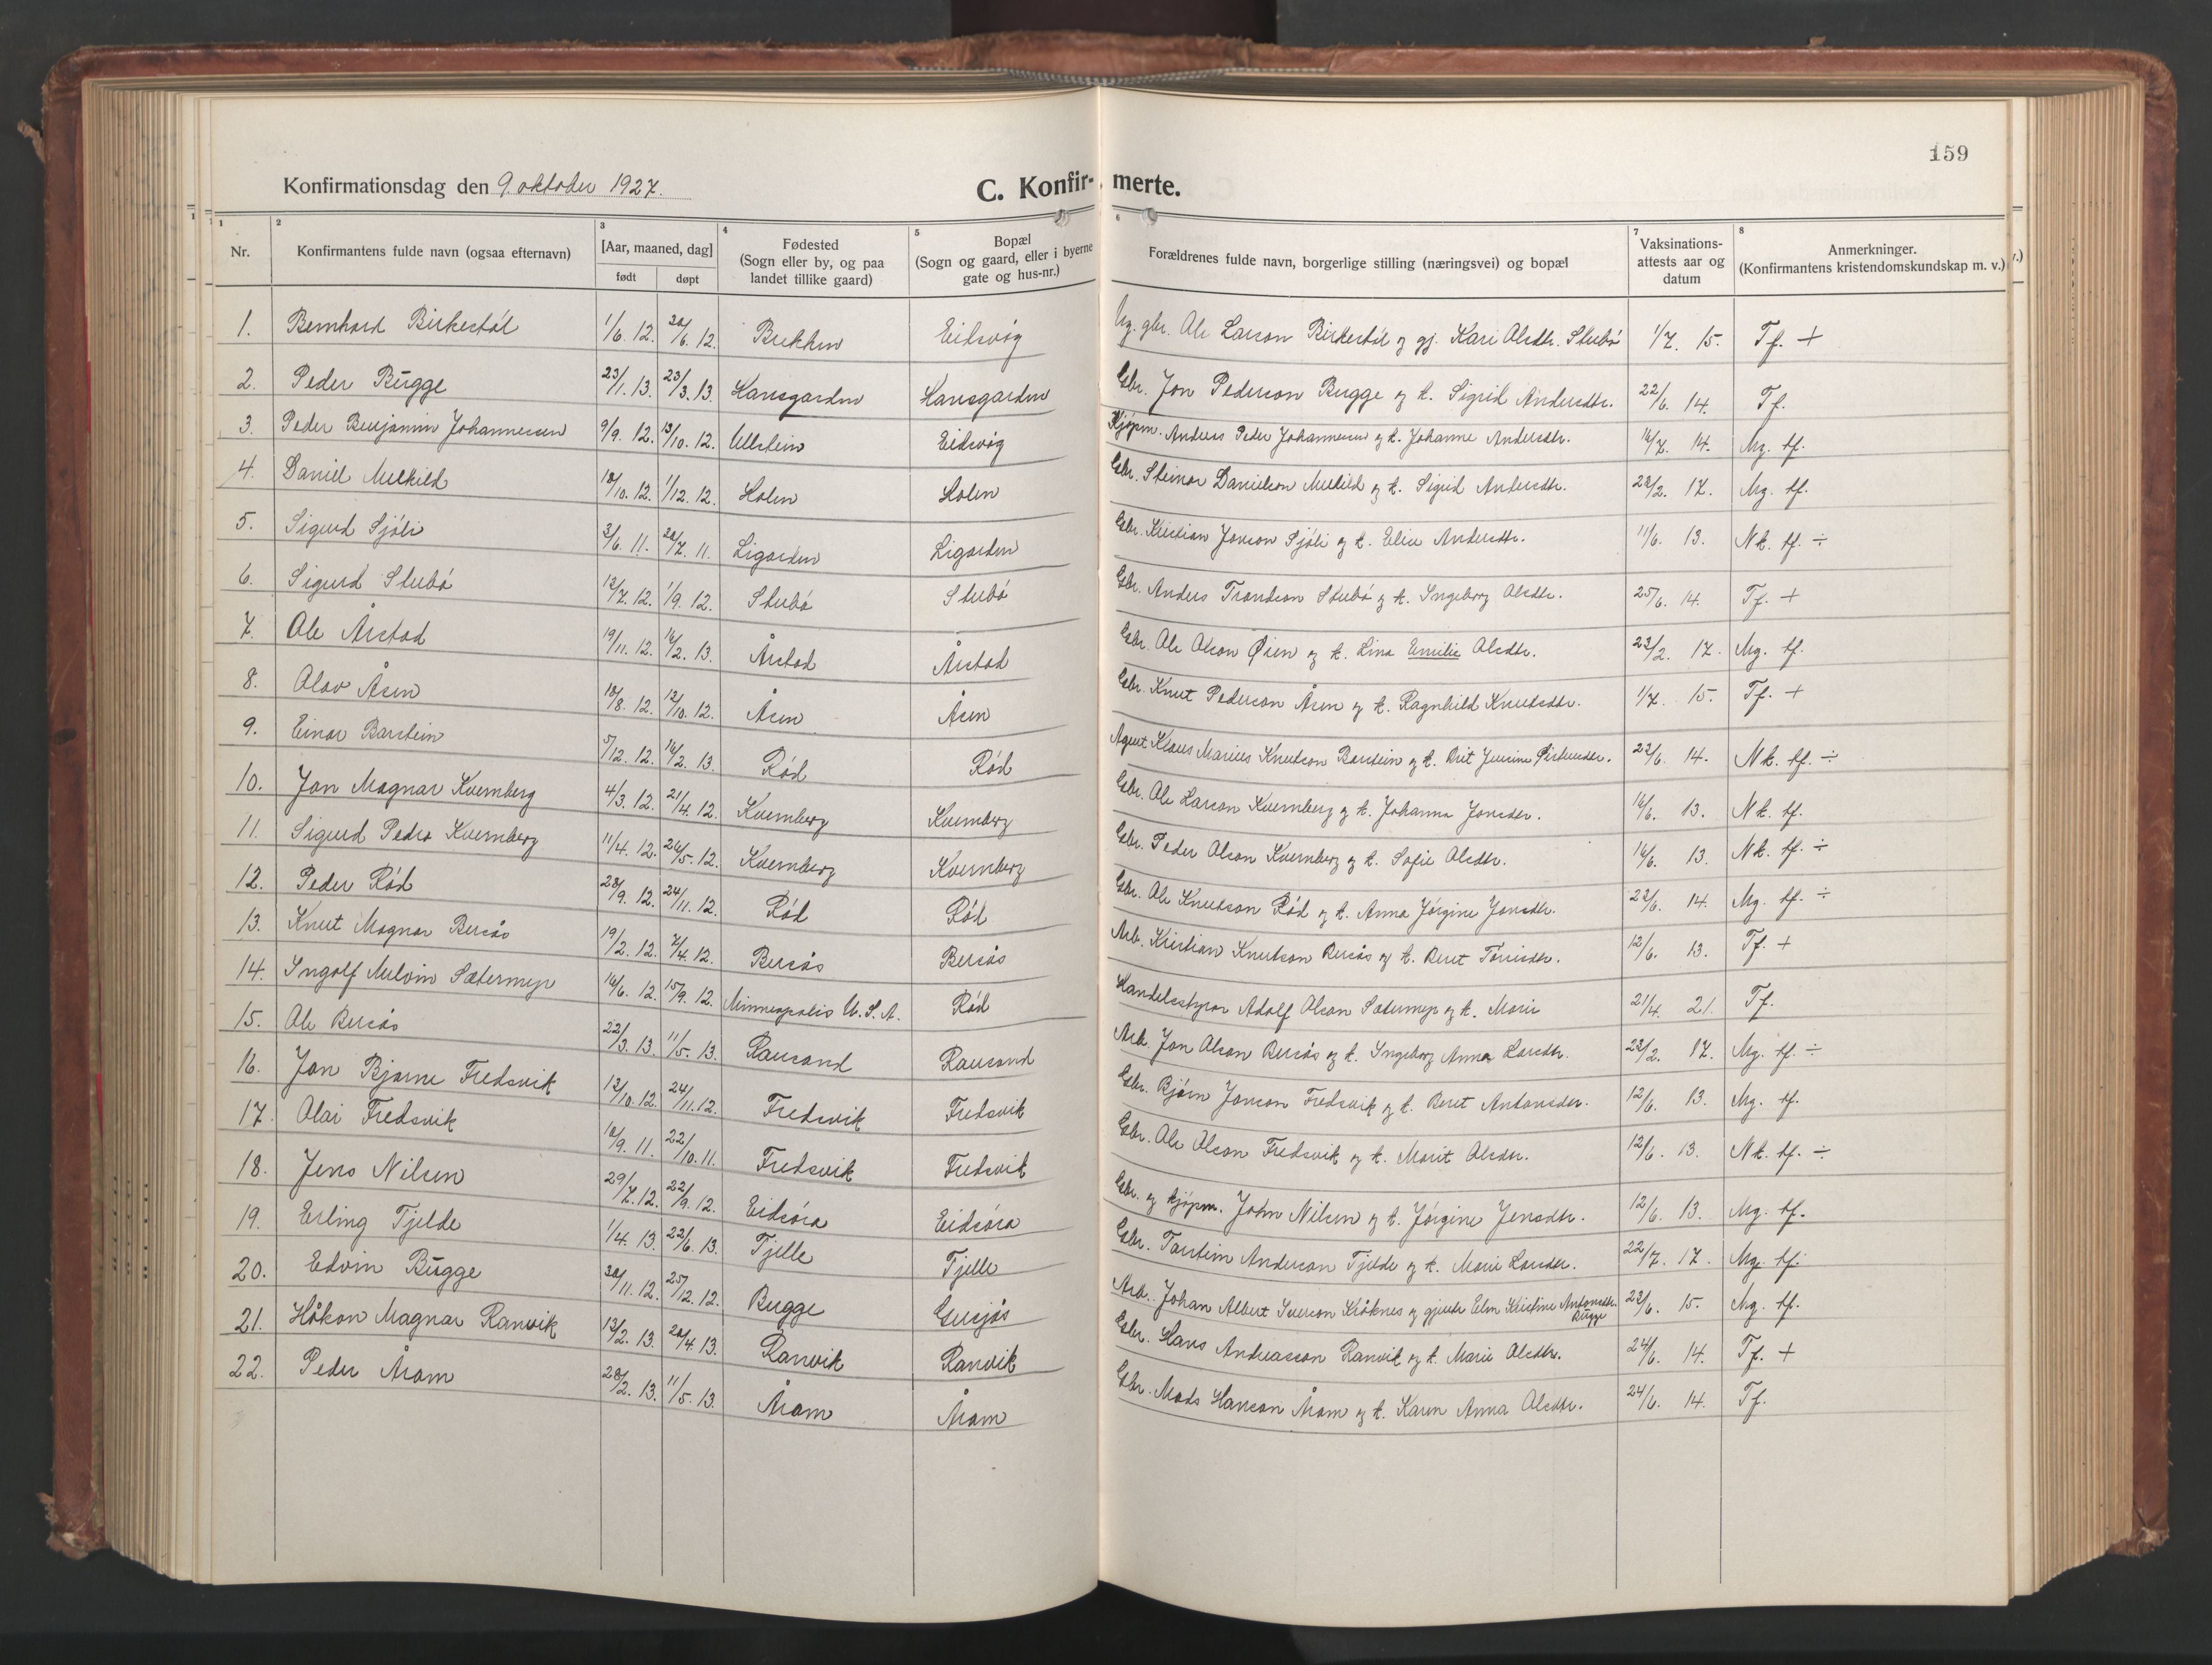 159
Konfirmationsdag den 9. oktober 1927.
C. Konfirmerte.
1 2 3 4 5 6 7 8
Nr. Konfirmantens fulde navn (ogsaa efternavn) [Aar, maaned, dag] født døpt Fødested (Sogn eller by, og paa landet tillike gaard) Bopæl (Sogn og gaard, eller i byerne gate og hus-nr.) Forældrenes fulde navn, borgerlige stilling (næringsvei) og bopæl Vaksinations-attests aar og datum Anmerkninger. (Konfirmantens kristendomskundskap m. v.)
1. Bernhard Birkestøl 1/6. 12. 20/6. 12. Bekken Eidsvåg Ug. gbr. Ole Larson Birkestøl og gj. Kari Olsdtr. Stubø 1/7. 15. Tf. +
2. Peder Bugge 23/1. 13. 23/3. 13. Hansgarden Hansgarden Gbr. Jon Pederson Bugge og k. Sigrid Andersdtr. 22/6. 14. Tf.
3. Peder Benjamin Johannessen 9/9. 12. 13/10. 12. Ullstein Eidsvåg Kjøpm. Anders Peder Johannessen og k. Johanne Andersdtr. 16/7. 14. Mg. tf.
4. Daniel Melkild 10/10. 12. 1/12. 12. Holen Holen Gbr. Steinar Danielson Melkild og k. Sigrid Andersdtr. 23/2. 17. Mg. tf.
5. Sigurd Sjøli 3/6. 11. 20/7. 11. Ligarden Ligarden Gbr. Kristian Jonson Sjøli og k. Elise Andersdtr. 11/6. 13. Nk. tf. ÷
6. Sigurd Stubø 12/7. 12. 1/9. 12. Stubø Stubø Gbr. Anders Trondson Stubø og k. Ingeborg Olsdtr. 25/6. 14. Tf. +
7. Ole Årstad 19/11. 12. 16/2. 13. Årstad Årstad Gbr. Ole Olson Øien og k. Lina Emilie Olsdtr. 23/2. 17. Mg. tf.
8. Olav Åsen 18/8. 12. 13/10. 12. Åsen Åsen Gbr. Knut Pederson Åsen og k. Ragnhild Knutsdtr. 1/7. 15. Tf. +
9. Einar Barstein 5/12. 12. 16/2. 13. Rød Rød Agent Klaus Marius Knutson Barstein og k. Brit Jensine 23/6. 14. Nk. tf. ÷
10. Jon Magnar Kvernberg 4/3. 12. 21/4. 12. Kvernberg Kvernberg Gbr. Ole Larson Kvernberg og k. Johanna Jonsdtr. 16/6. 13. Nk. tf.
11. Sigurd Peder Kvernberg 11/4. 12. 26/5. 12. Kvernberg Kvernberg Gbr. Peder Olson Kvernberg og k. Sofie Olsdtr. 16/6. 13. Nk. tf. ÷
12. Peder Rød 28/9. 12. 24/11. 12. Rød Rød Gbr. Ole Knutson Rød og k. Anna Jørgine Jonsdtr. 23/6. 14. Mg. tf. ÷
13. Knut Magnar Bersås 19/2. 12. 7/4. 12. Bersås Bersås Arb. Kristian Knutson Bersås og k. Beret Tørrisdtr. 12/6. 13. Tf. +
14. Ingolf Melvin Sætermyr 16/6. 12. 15/9. 12. Minneapolis U. S. A. Rød Handelsstyrar Adolf Olson Sætermyr og k. Marie 21/4. 21. Tf.
15. Ole Bersås 22/3. 13. 11/5. 13. Rausand Rausand Arb. Jon Olson Bersås og k. Ingeborg Anna Larsdtr. 23/2. 17. Mg. tf. ÷
16. Jon Bjarne Fredsvik 12/10. 12. 24/11. 12. Fredsvik Fredsvik Gbr. Bjørn Jonson Fredsvik og k. Beret Antonsdtr. 12/6. 13. Mg. tf.
17. Olai Fredsvik 10/9. 11. 22/10. 11. Fredsvik Fredsvik Gbr. Ole Olson Fredsvik og k. Marit Olsdtr. 12/6. 13. Nk. tf. ÷
18. Jens Nilsen 29/7. 12. 22/9. 12. Eidsøra Eidsøra Gbr. og kjøpm. John Nilsen og k. Jørgine Jensdtr. 12/6. 13. Mg. tf.
19. Erling Tjelde 1/4. 13. 22/6. 13. Tjelle Tjelle Gbr. Torstein Anderson Tjelde og k. Marie Larsdtr. 22/7. 17. Mg. tf.
20. Edvin Bugge 30/11. 12. 25/12. 12. Bugge Gusjås Arb. Johan Albert Iverson Kråknes og gjente Elen Kristine Antonsdtr. Bugge 23/6. 15. Mg. tf.
21. Håkon Magnar Ranvik 13/2. 13. 20/4. 13. Ranvik Ranvik Gbr. Hans Andreasson Ranvik og k. Marie Olsdtr. 24/6. 14. Tf. +
22. Peder Åram 28/2. 13. 11/5. 13. Åram Åram Gbr. Mads Hanson Åram og k. Karen Anna Olsdtr. 24/6. 14. Tf.